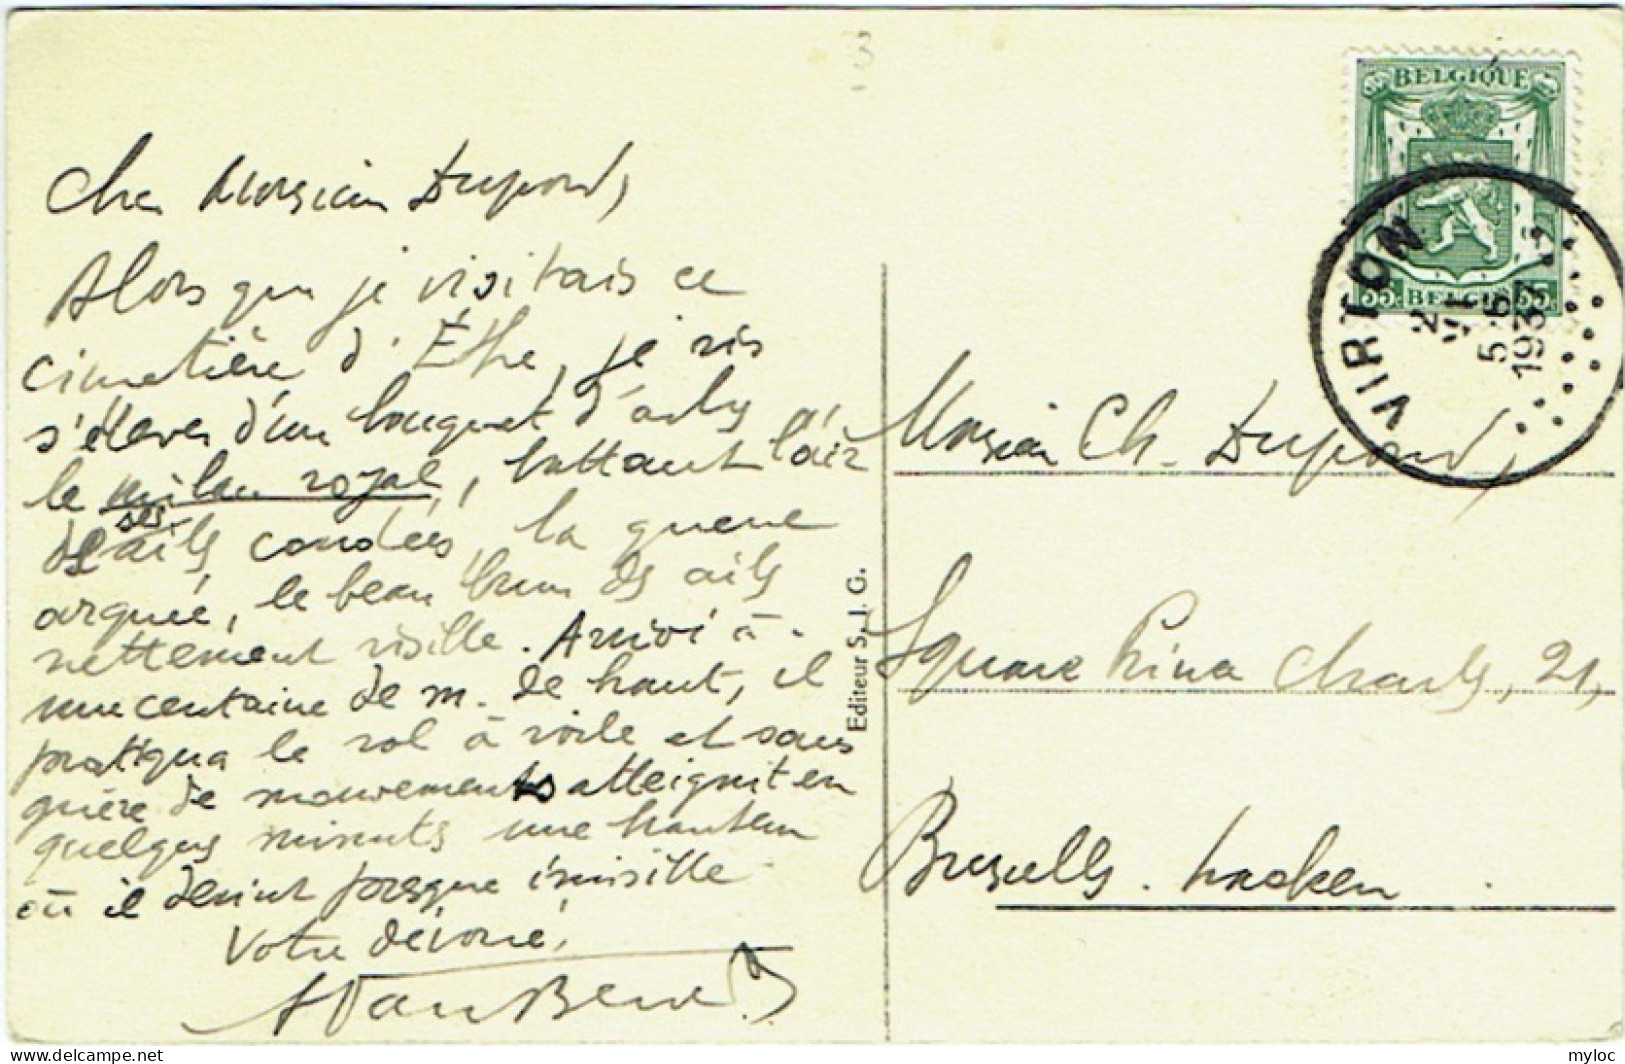 Cher Monsieur Dupond,
Alors que je visitais ce
cimetière d'Èthe, je vis
s'élever d'un bouquet d'arbres
le milan royal, battant l'air
de ses ailes coudées, la queue
arquée, le beau brun des ailes
nettement visible. Arrivé à
une centaine de m. de haut, il
pratiqua le vol à voile et sans
guère de mouvements atteignit en
quelques minutes une hauteur
où il devint presque invisible
Votre dévoué,
Editeur S. I. G.
BELGIQUE
35 BELGIË 35
VIRTON
1937
Monsieur Ch. Dupond,
Square Prince Charles, 21,
Bruxelles. Laeken
myloc